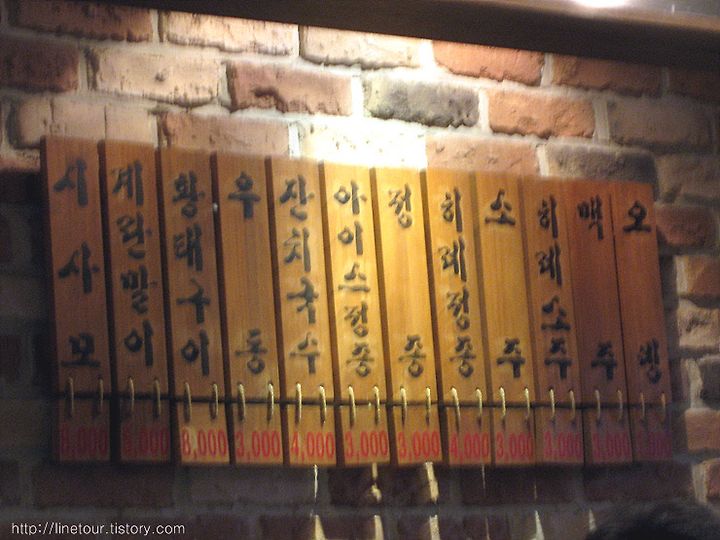 시사모 8,000
계란말이
황태구이 8,000
우동 3,000
잔치국수 4,000
아이스정종 3,000
정종 3,000
히레정종 4,000
소주 3,000
히레소주 3,000
맥주 3,000
오뎅
http://linetour.tistory.com